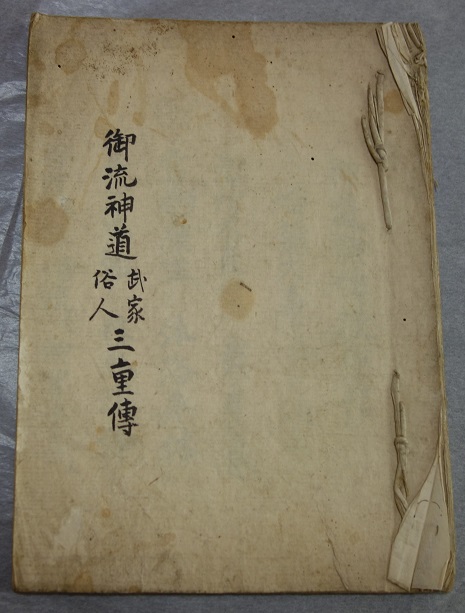 御流神道武家俗人三重傳